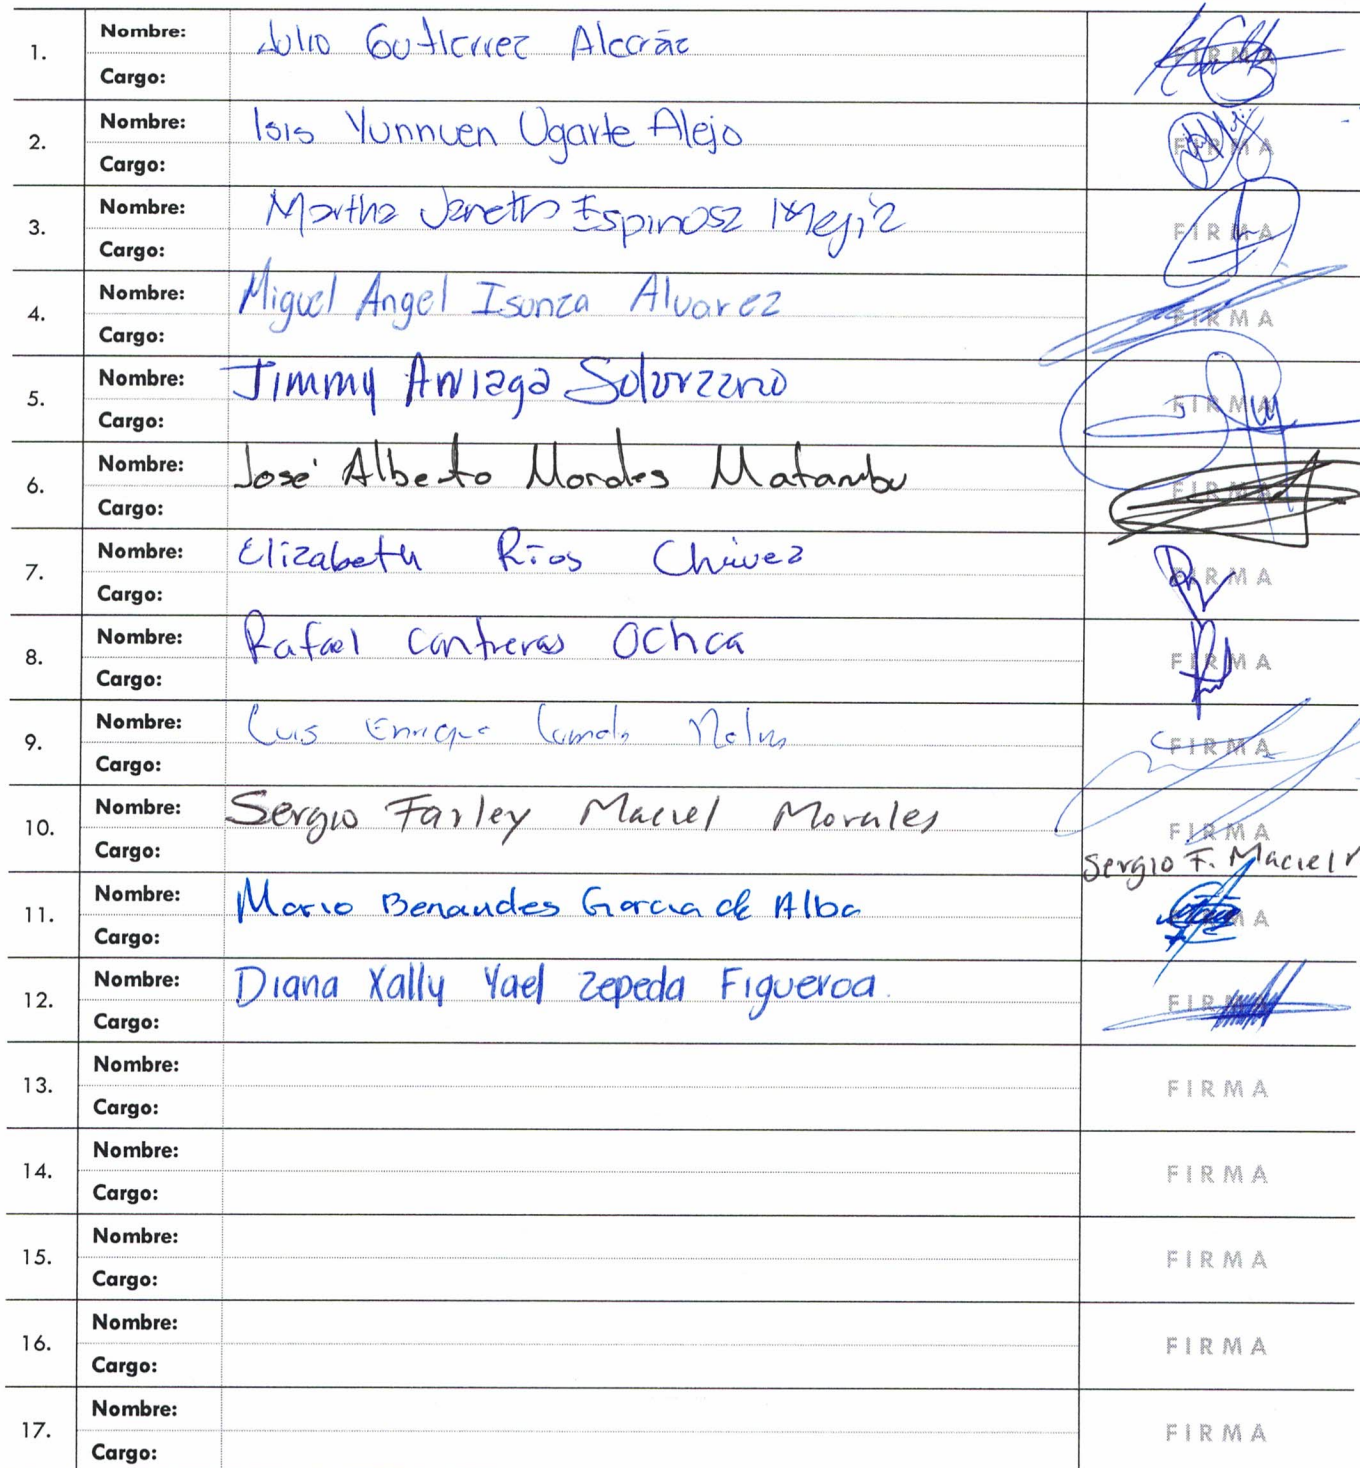 1. Nombre: Julio Gutierrez Alcaráz FIRMA
Cargo:
2. Nombre: Isis Yunnuen Ugarte Alejo FIRMA
Cargo:
3. Nombre: Martha Janeth Espinosa Mejía FIRMA
Cargo:
4. Nombre: Miguel Angel Isunza Alvarez FIRMA
Cargo:
5. Nombre: Jimmy Arriaga Solorzano FIRMA
Cargo:
6. Nombre: José Alberto Morales FIRMA
Cargo:
7. Nombre: Elizabeth Ríos Chávez FIRMA
Cargo:
8. Nombre: Rafael Contreras Ochoa FIRMA
Cargo:
9. Nombre: Luis Enrique FIRMA
Cargo:
10. Nombre: Sergio Farley Maciel Morales FIRMA
Cargo: Sergio F. Maciel
11. Nombre: Mario Benaudes Garcia de Alba FIRMA
Cargo:
12. Nombre: Diana Xally Yael Zepeda Figueroa. FIRMA
Cargo:
13. Nombre: FIRMA
Cargo:
14. Nombre: FIRMA
Cargo:
15. Nombre: FIRMA
Cargo:
16. Nombre: FIRMA
Cargo:
17. Nombre: FIRMA
Cargo: